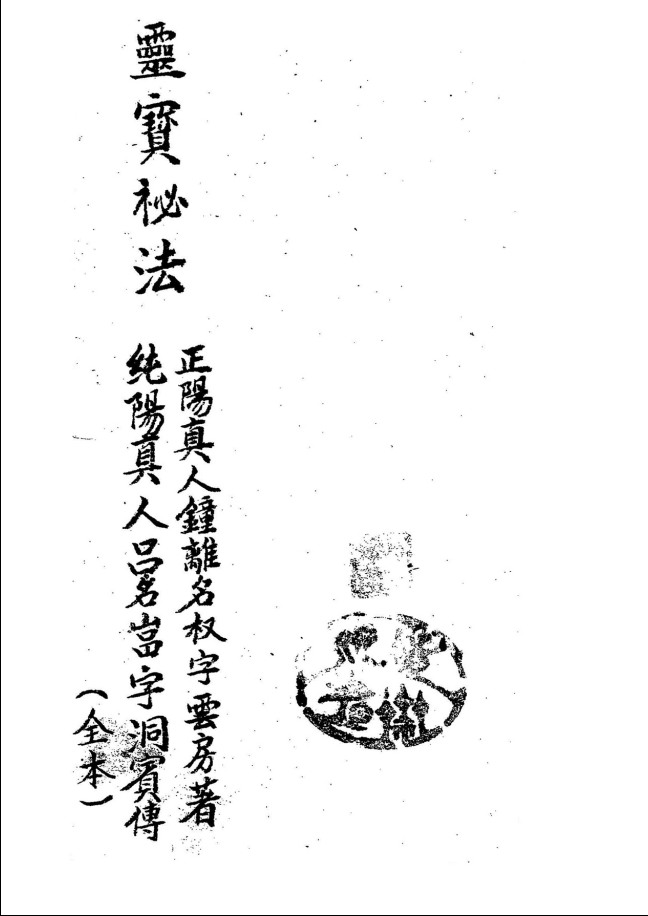 靈寶祕法
正陽真人鐘離名权字雲房著
純陽真人呂名嵓字洞賓傳
(全本)